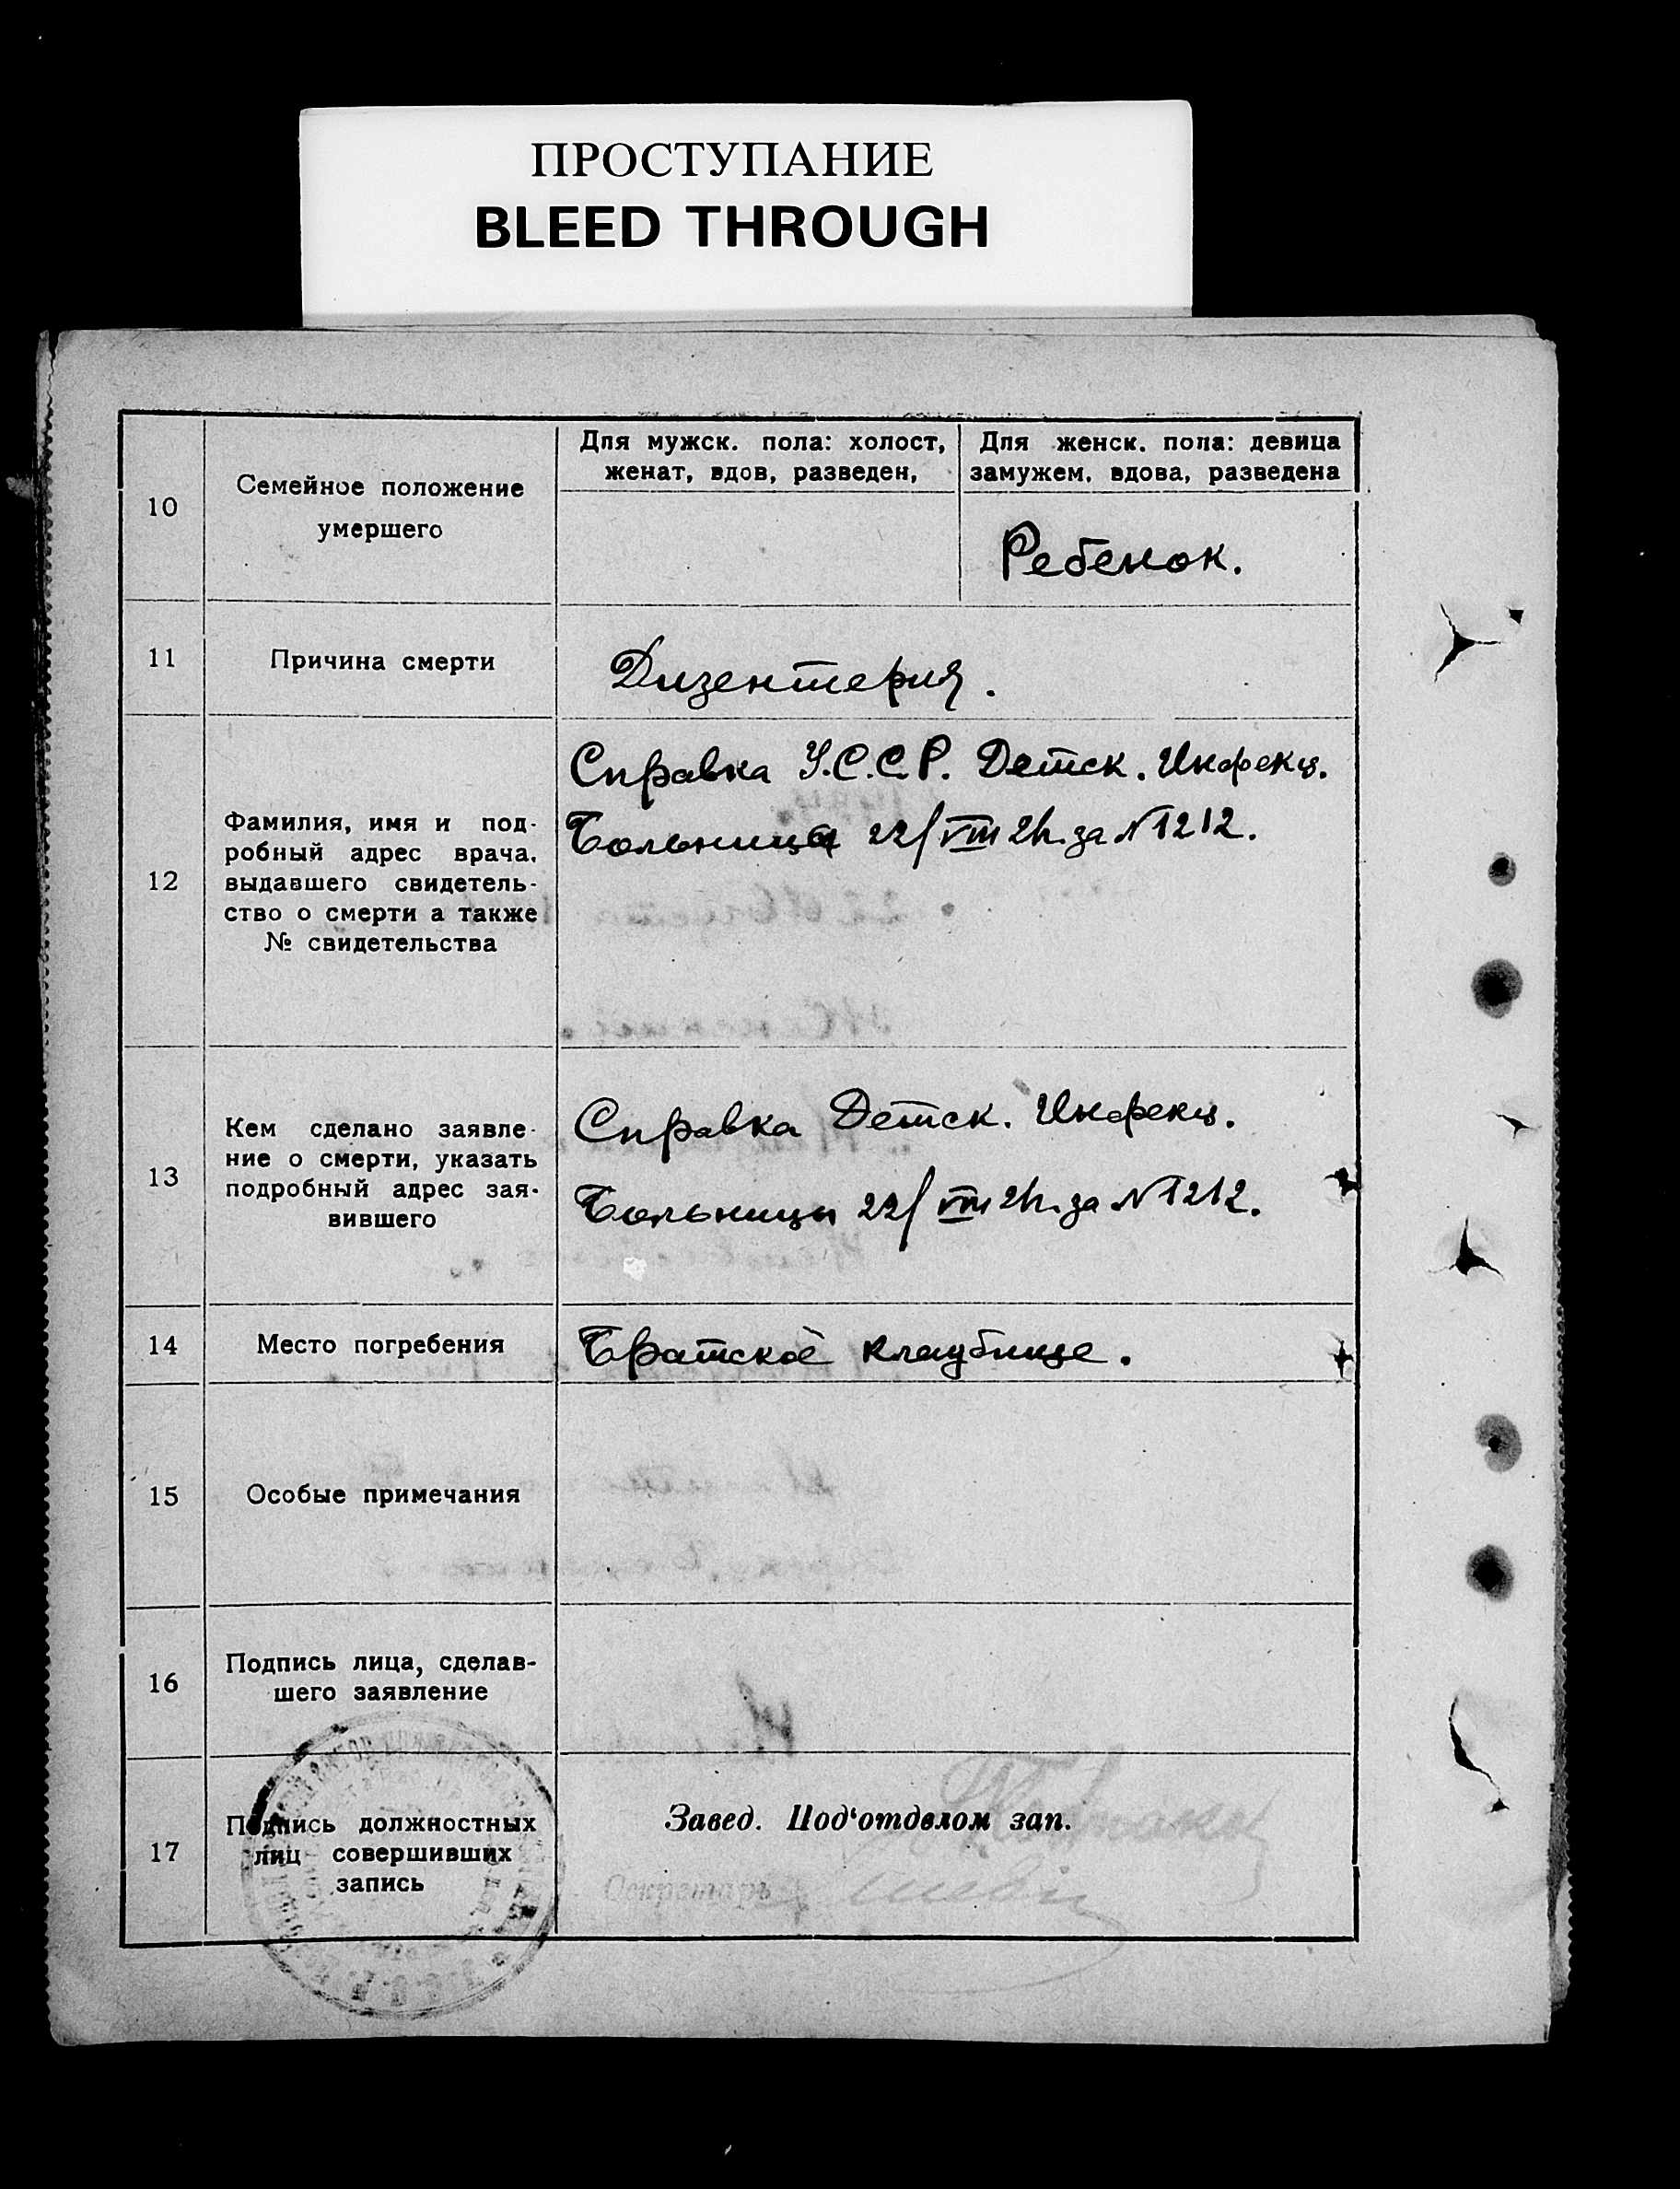 ПРОСТУПАНИЕ
BLEED THROUGH
Для мужск. пола: холост,
женат, вдов, разведен,
Для женск. пола: девица
замужем, вдова, разведена
10
Семейное положение
умершего
Ребенок.
11
Причина смерти
Дизентерия.
12
Фамилия, имя и под-
робный адрес врача,
выдавшего свидетель-
ство о смерти а также
№ свидетельства
Справка У.С.С.Р. Детск. Инфекц.
Больницы 22/VIII 21г. за №1212.
13
Кем сделано заявле-
ние о смерти, указать
подробный адрес зая-
вившего
Справка Детск. Инфекц.
Больницы 22/VIII 21г. за №1212.
14
Место погребения
Братское кладбище.
15
Особые примечания
16
Подпись лица, сделав-
шего заявление
17
Подпись должностных
лиц совершивших
запись
Завед. Под‘отделом зап.
Секретарь